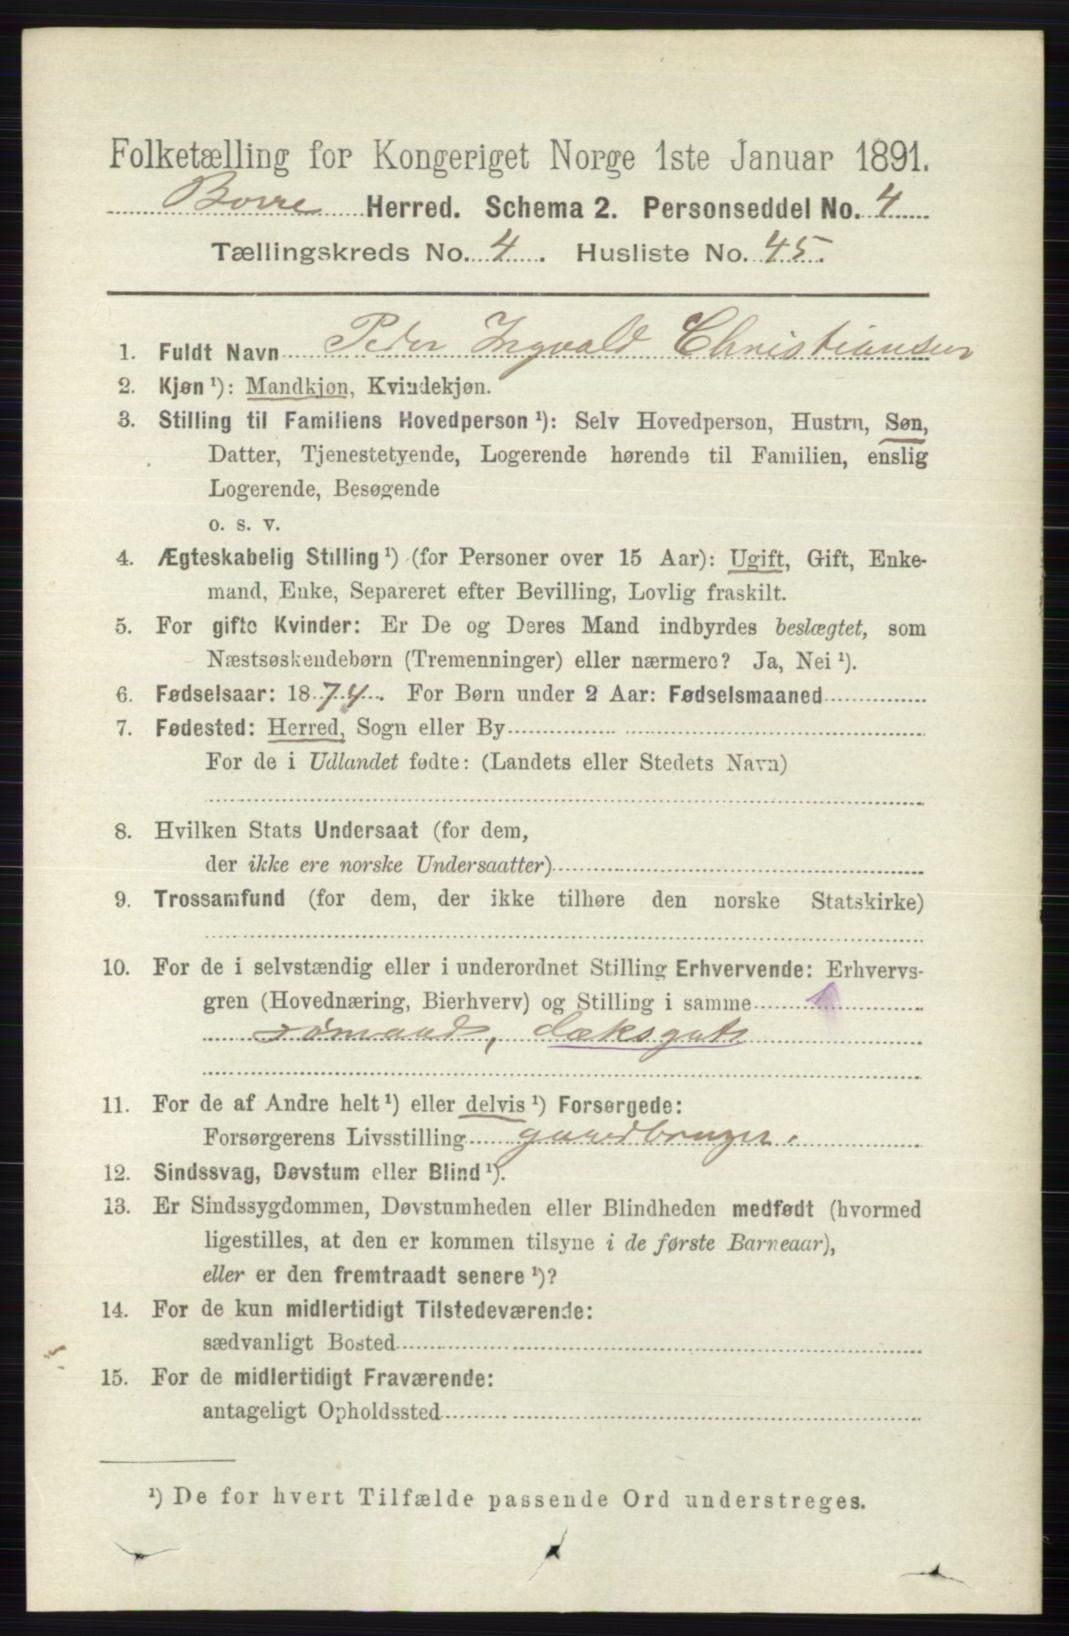 Folketælling for Kongeriget Norge 1ste Januar 1891.
Borre Herred. Schema 2. Personseddel No. 4
Tællingskreds No. 4. Husliste No. 45.
1. Fuldt Navn Peder Ingvald Christiansen
2. Kjøn ¹): Mandkjøn, Kvindekjøn.
3. Stilling til Familiens Hovedperson ¹): Selv Hovedperson, Hustru, Søn,
Datter, Tjenestetyende, Logerende hørende til Familien, enslig
Logerende, Besøgende
o. s. v.
4. Ægteskabelig Stilling ¹) (for Personer over 15 Aar): Ugift, Gift, Enke-
mand, Enke, Separeret efter Bevilling, Lovlig fraskilt.
5. For gifte Kvinder: Er De og Deres Mand indbyrdes beslægtet, som
Næstsøskendebørn (Tremenninger) eller nærmere? Ja, Nei ¹).
6. Fødselsaar: 1874. For Børn under 2 Aar: Fødselsmaaned
7. Fødested: Herred, Sogn eller By
For de i Udlandet fødte: (Landets eller Stedets Navn)
8. Hvilken Stats Undersaat (for dem,
der ikke ere norske Undersaatter)
9. Trossamfund (for dem, der ikke tilhøre den norske Statskirke)
10. For de i selvstændig eller i underordnet Stilling Erhvervende: Erhvervs-
gren (Hovednæring, Bierhverv) og Stilling i samme 1
sømand, dæksgut
11. For de af Andre helt ¹) eller delvis ¹) Forsørgede:
Forsørgerens Livsstilling gaardbruger.
12. Sindssvag, Døvstum eller Blind ¹).
13. Er Sindssygdommen, Døvstumheden eller Blindheden medfødt (hvormed
ligestilles, at den er kommen tilsyne i de første Barneaar),
eller er den fremtraadt senere ¹)?
14. For de kun midlertidigt Tilstedeværende:
sædvanligt Bosted
15. For de midlertidigt Fraværende:
antageligt Opholdssted
¹) De for hvert Tilfælde passende Ord understreges.